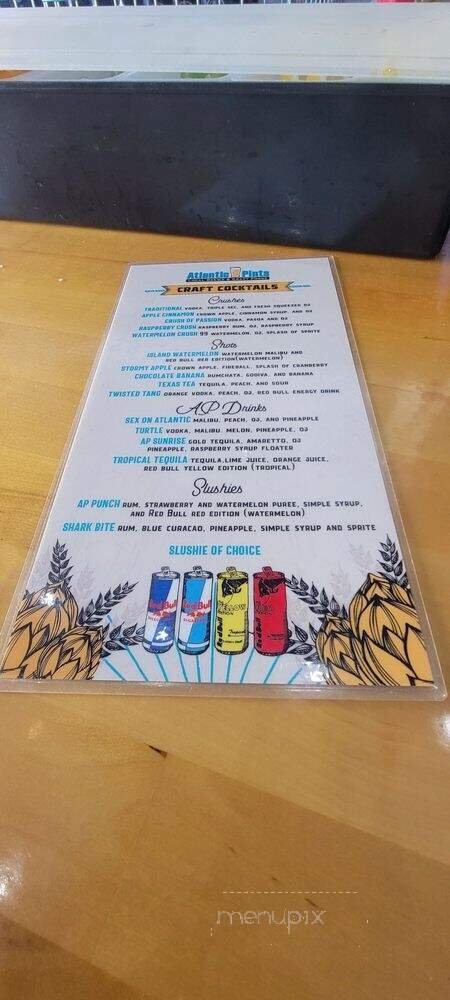 Atlantic Pints
CRAFT COCKTAILS
Crushes
TRADITIONAL VODKA, TRIPLE SEC, AND FRESH SQUEEZED OJ
APPLE CINNAMON CROWN APPLE, CINNAMON SYRUP, AND OJ
CRUSH OF PASSION VODKA, PASOA AND OJ
RASPBERRY CRUSH RASPBERRY RUM, OJ, RASPBERRY SYRUP
WATERMELON CRUSH 99 WATERMELON, OJ, SPLASH OF SPRITE
Shots
ISLAND WATERMELON WATERMELON MALIBU AND
RED BULL RED EDITION(WATERMELON)
STORMY APPLE CROWN APPLE, FIREBALL, SPLASH OF CRANBERRY
CHOCOLATE BANANA RUMCHATA, GODIVA, AND BANANA
TEXAS TEA TEQUILA, PEACH, AND SOUR
TWISTED TANG ORANGE VODKA, PEACH, OJ, RED BULL ENERGY DRINK
AP Drinks
SEX ON ATLANTIC MALIBU, PEACH, OJ, AND PINEAPPLE
TURTLE VODKA, MALIBU, MELON, PINEAPPLE, OJ
AP SUNRISE GOLD TEQUILA, AMARETTO, OJ
PINEAPPLE, RASPBERRY SYRUP FLOATER
TROPICAL TEQUILA TEQUILA,LIME JUICE, ORANGE JUICE,
RED BULL YELLOW EDITION (TROPICAL)
Slushies
AP PUNCH RUM, STRAWBERRY AND WATERMELON PUREE, SIMPLE SYRUP,
AND RED BULL RED EDITION (WATERMELON)
SHARK BITE RUM, BLUE CURACAO, PINEAPPLE, SIMPLE SYRUP AND SPRITE
SLUSHIE OF CHOICE
Red Bull Red Bull YELLOW EDITION RED
Tropical
Red Bull Red Bull
menupix